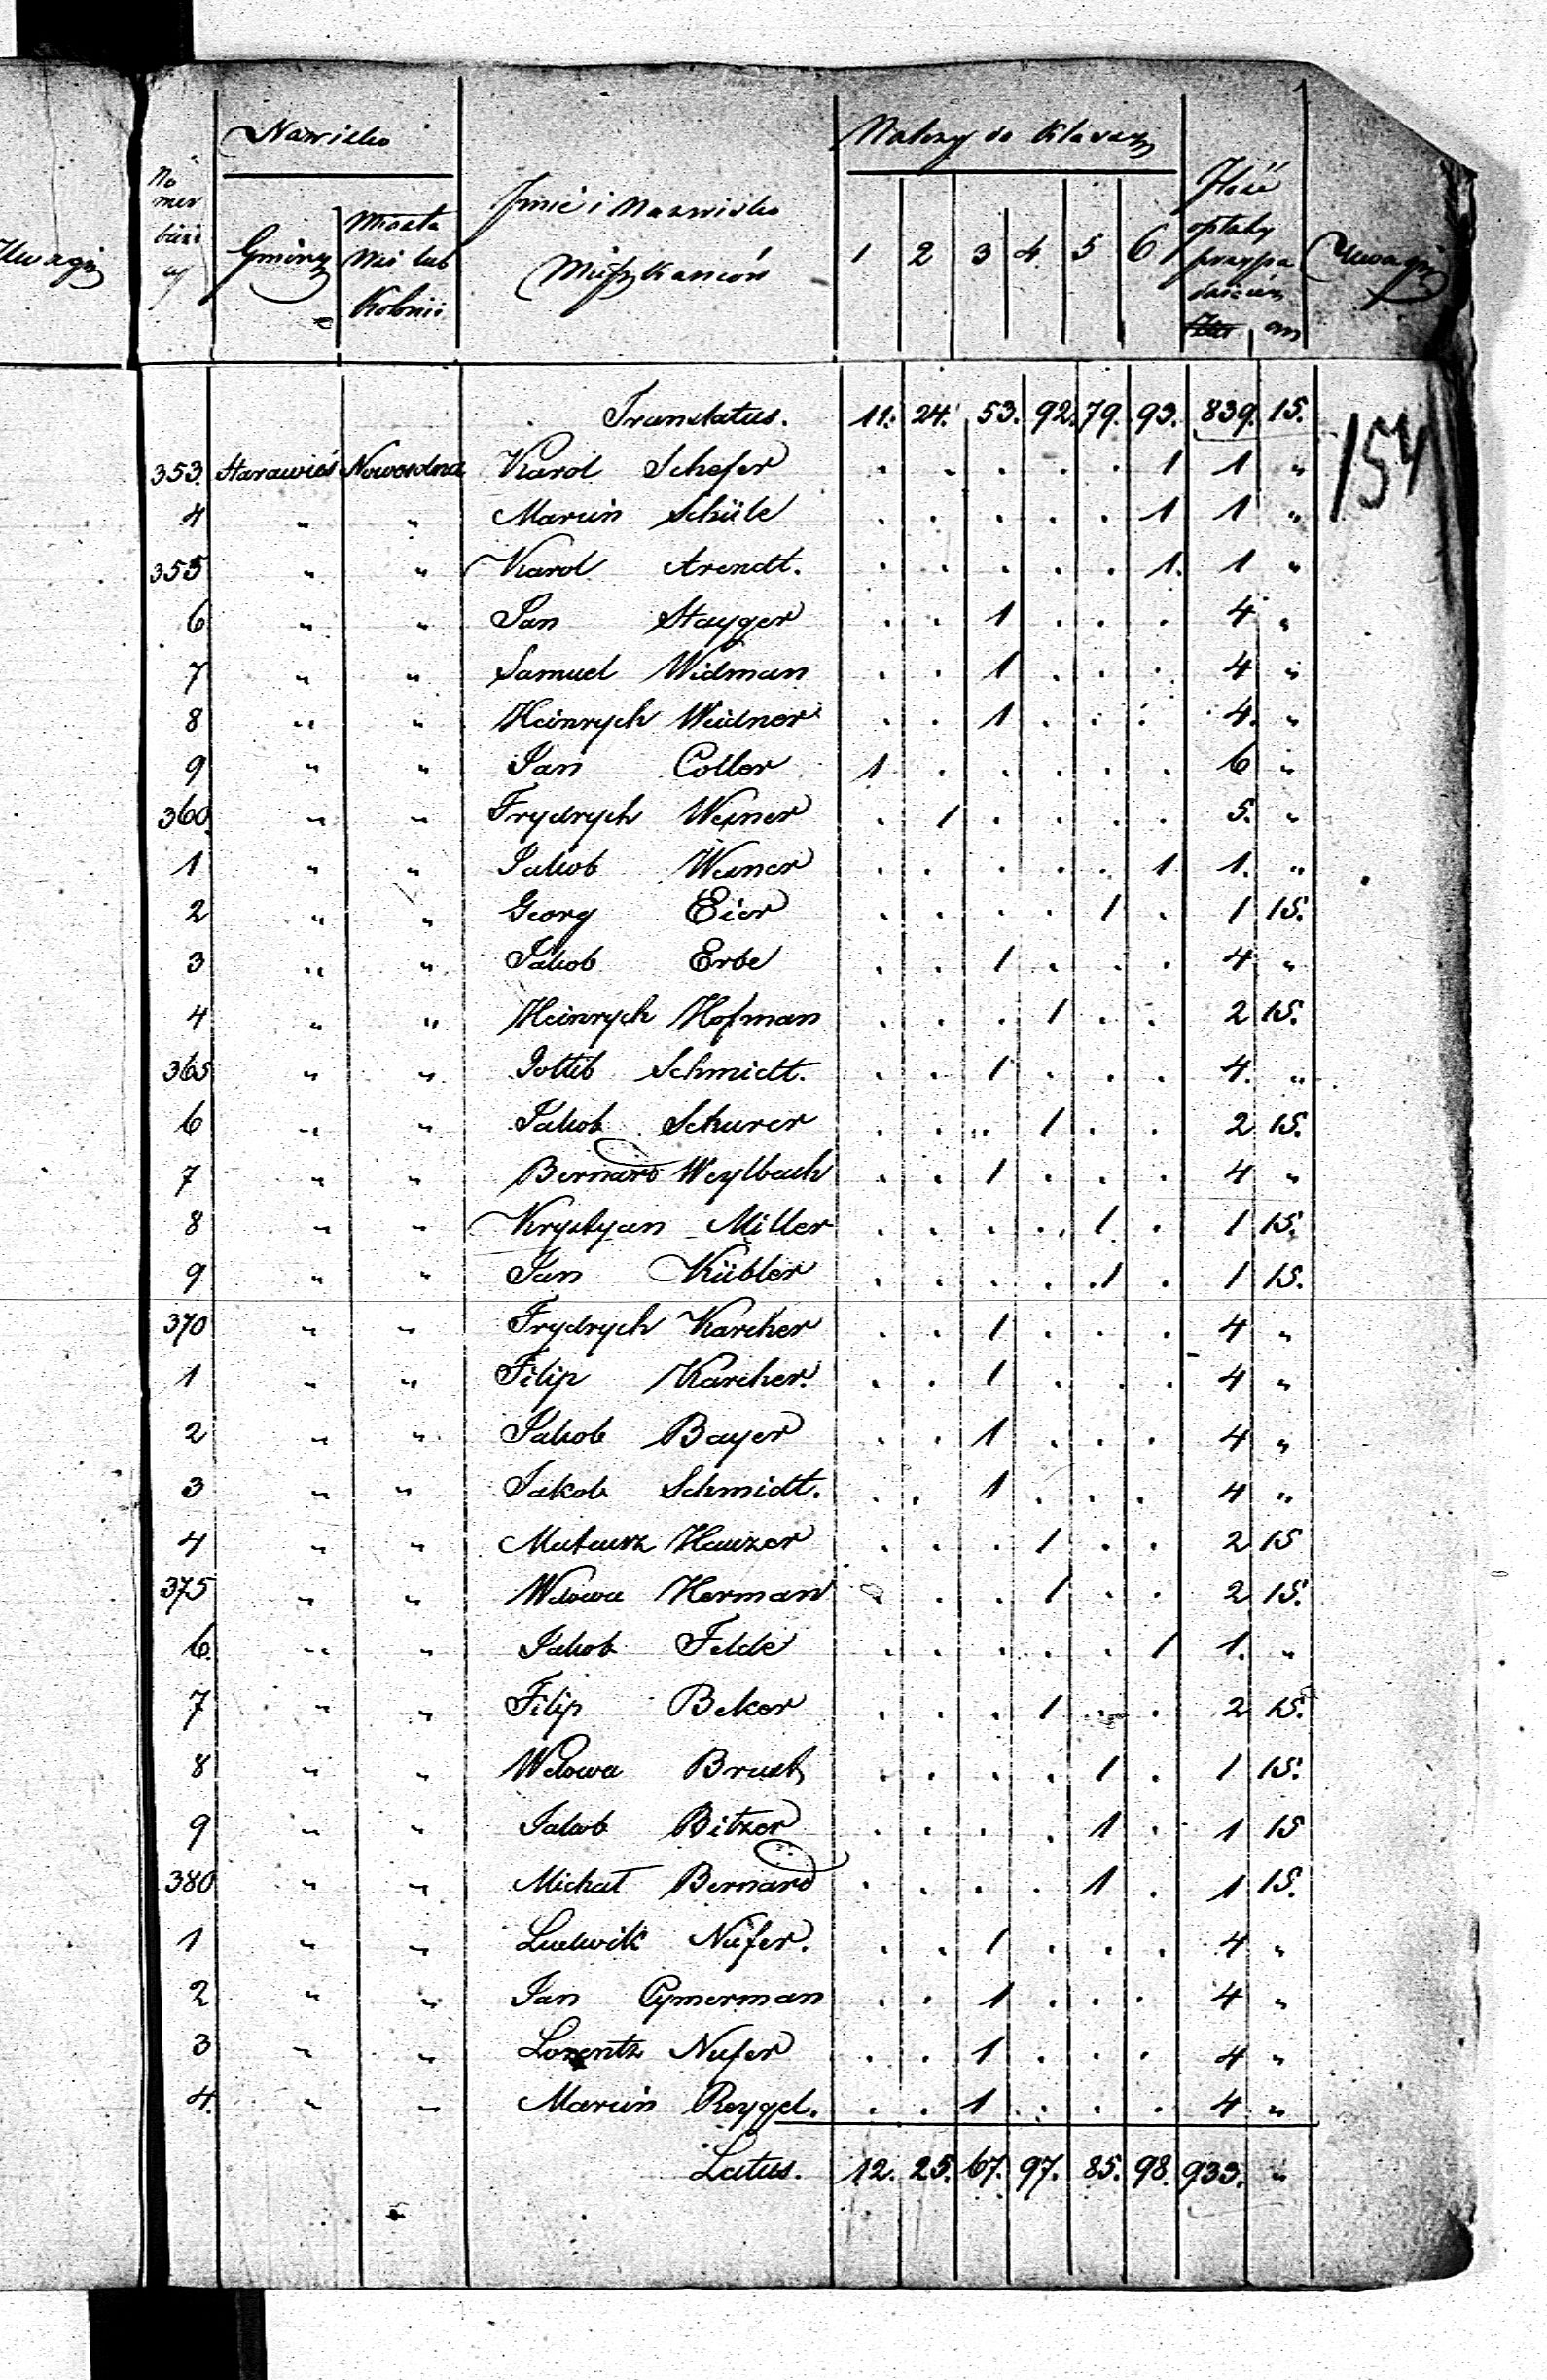 Uwagi
Numer bieżący
Nazwisko
Gminy
Miasta Wsi lub Kolonii
Jmie i Nazwisko Mieszkanców
Należy do Klassy
1 2 3 4 5 6
Jlość opłaty przypadaiącéy
Złt gr
Uwagi
154
Translatus. 11. 24. 53. 92. 79. 93. 839. 15.
353. Starawieś Nowosolna Karol Schefer . . . . . 1 1 "
4 " " Marcin Schüle . . . . . 1 1 "
355 " " Karol Arendt. . . . . . 1. 1 "
6 " " Jan Stayger . . 1 . . . 4 "
7 " " Samuel Widman . . 1 . . . 4 "
8 " " Heinrych Weidner . . 1 . . . 4. "
9 " " Jan Coller 1 . . . . . 6 "
360. " " Frydrych Wexner . 1 . . . . 5. "
1 " " Jakob Wexner . . . . . 1 1. "
2 " " Georg Eier . . . . 1 . 1 15.
3 " " Jakob Erbe . . 1 . . . 4 "
4 " " Heinrych Hofman . . . 1 . . 2 15.
365 " " Gottlib Schmidt. . . 1 . . . 4. "
6 " " Jakob Schurer . . . 1 . . 2 15.
7 " " Bernard Weylbach . . 1 . . . 4 "
8 " " Krystyan Miller . . . . 1 . 1 15.
9 " " Jan Kübler . . . . 1 . 1 15.
370 " " Frydrych Karcher . . 1 . . . 4 "
1 " " Filip Karcher. . . 1 . . . 4 "
2 " " Jakob Bayer . . 1 . . . 4 "
3 " " Jakob Schmidt. . . 1 . . . 4 "
4 " " Mateusz Hauzer . . . 1 . . 2 15
375 " " Wdowa Herman . . . 1 . . 2 15.
6. " " Jakob Felde . . . . . 1 1. "
7 " " Filip Beker . . . 1 . . 2 15.
8 " " Wdowa Brust . . . . 1 . 1 15.
9 " " Jakob Bitzer . . . . 1 . 1 15
380 " " Michał Bernard . . . . 1 . 1 15.
1 " " Ludwik Nüfer. . . 1 . . . 4 "
2 " " Jan Cymerman . . 1 . . . 4 "
3 " " Lorentz Nufer . . 1 . . . 4 "
4. " " Marcin Reygel. . . 1 . . . 4 "
Latus. 12. 25. 67. 97. 85. 98. 933. "